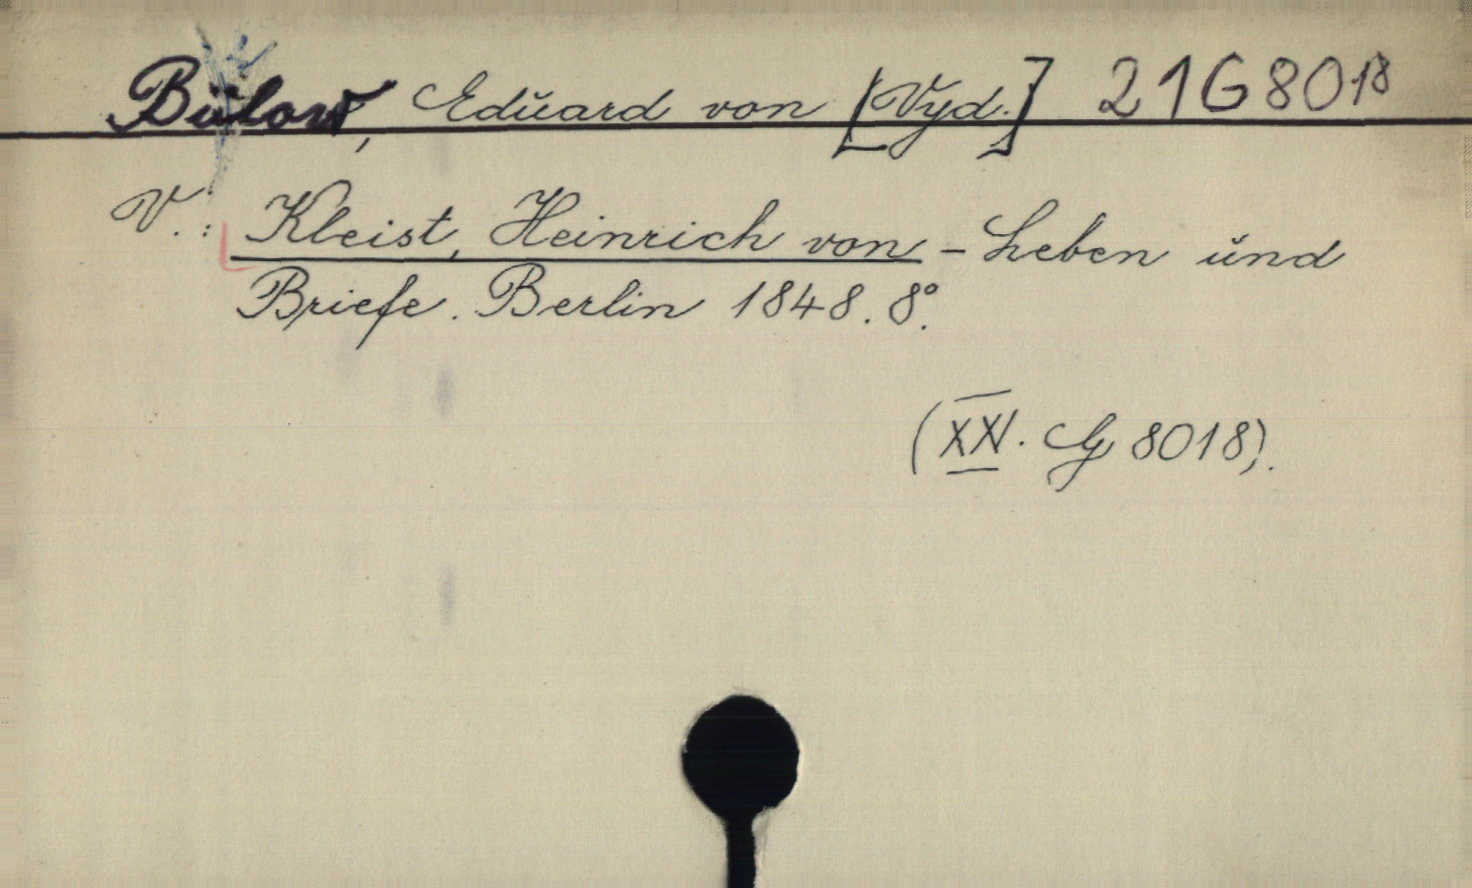 Bülow, Eduard von [Vyd.] 21G8018
V.: Kleist, Heinrich von – Leben und
Briefe. Berlin 1848. 8°.
(XXI. G 8018).